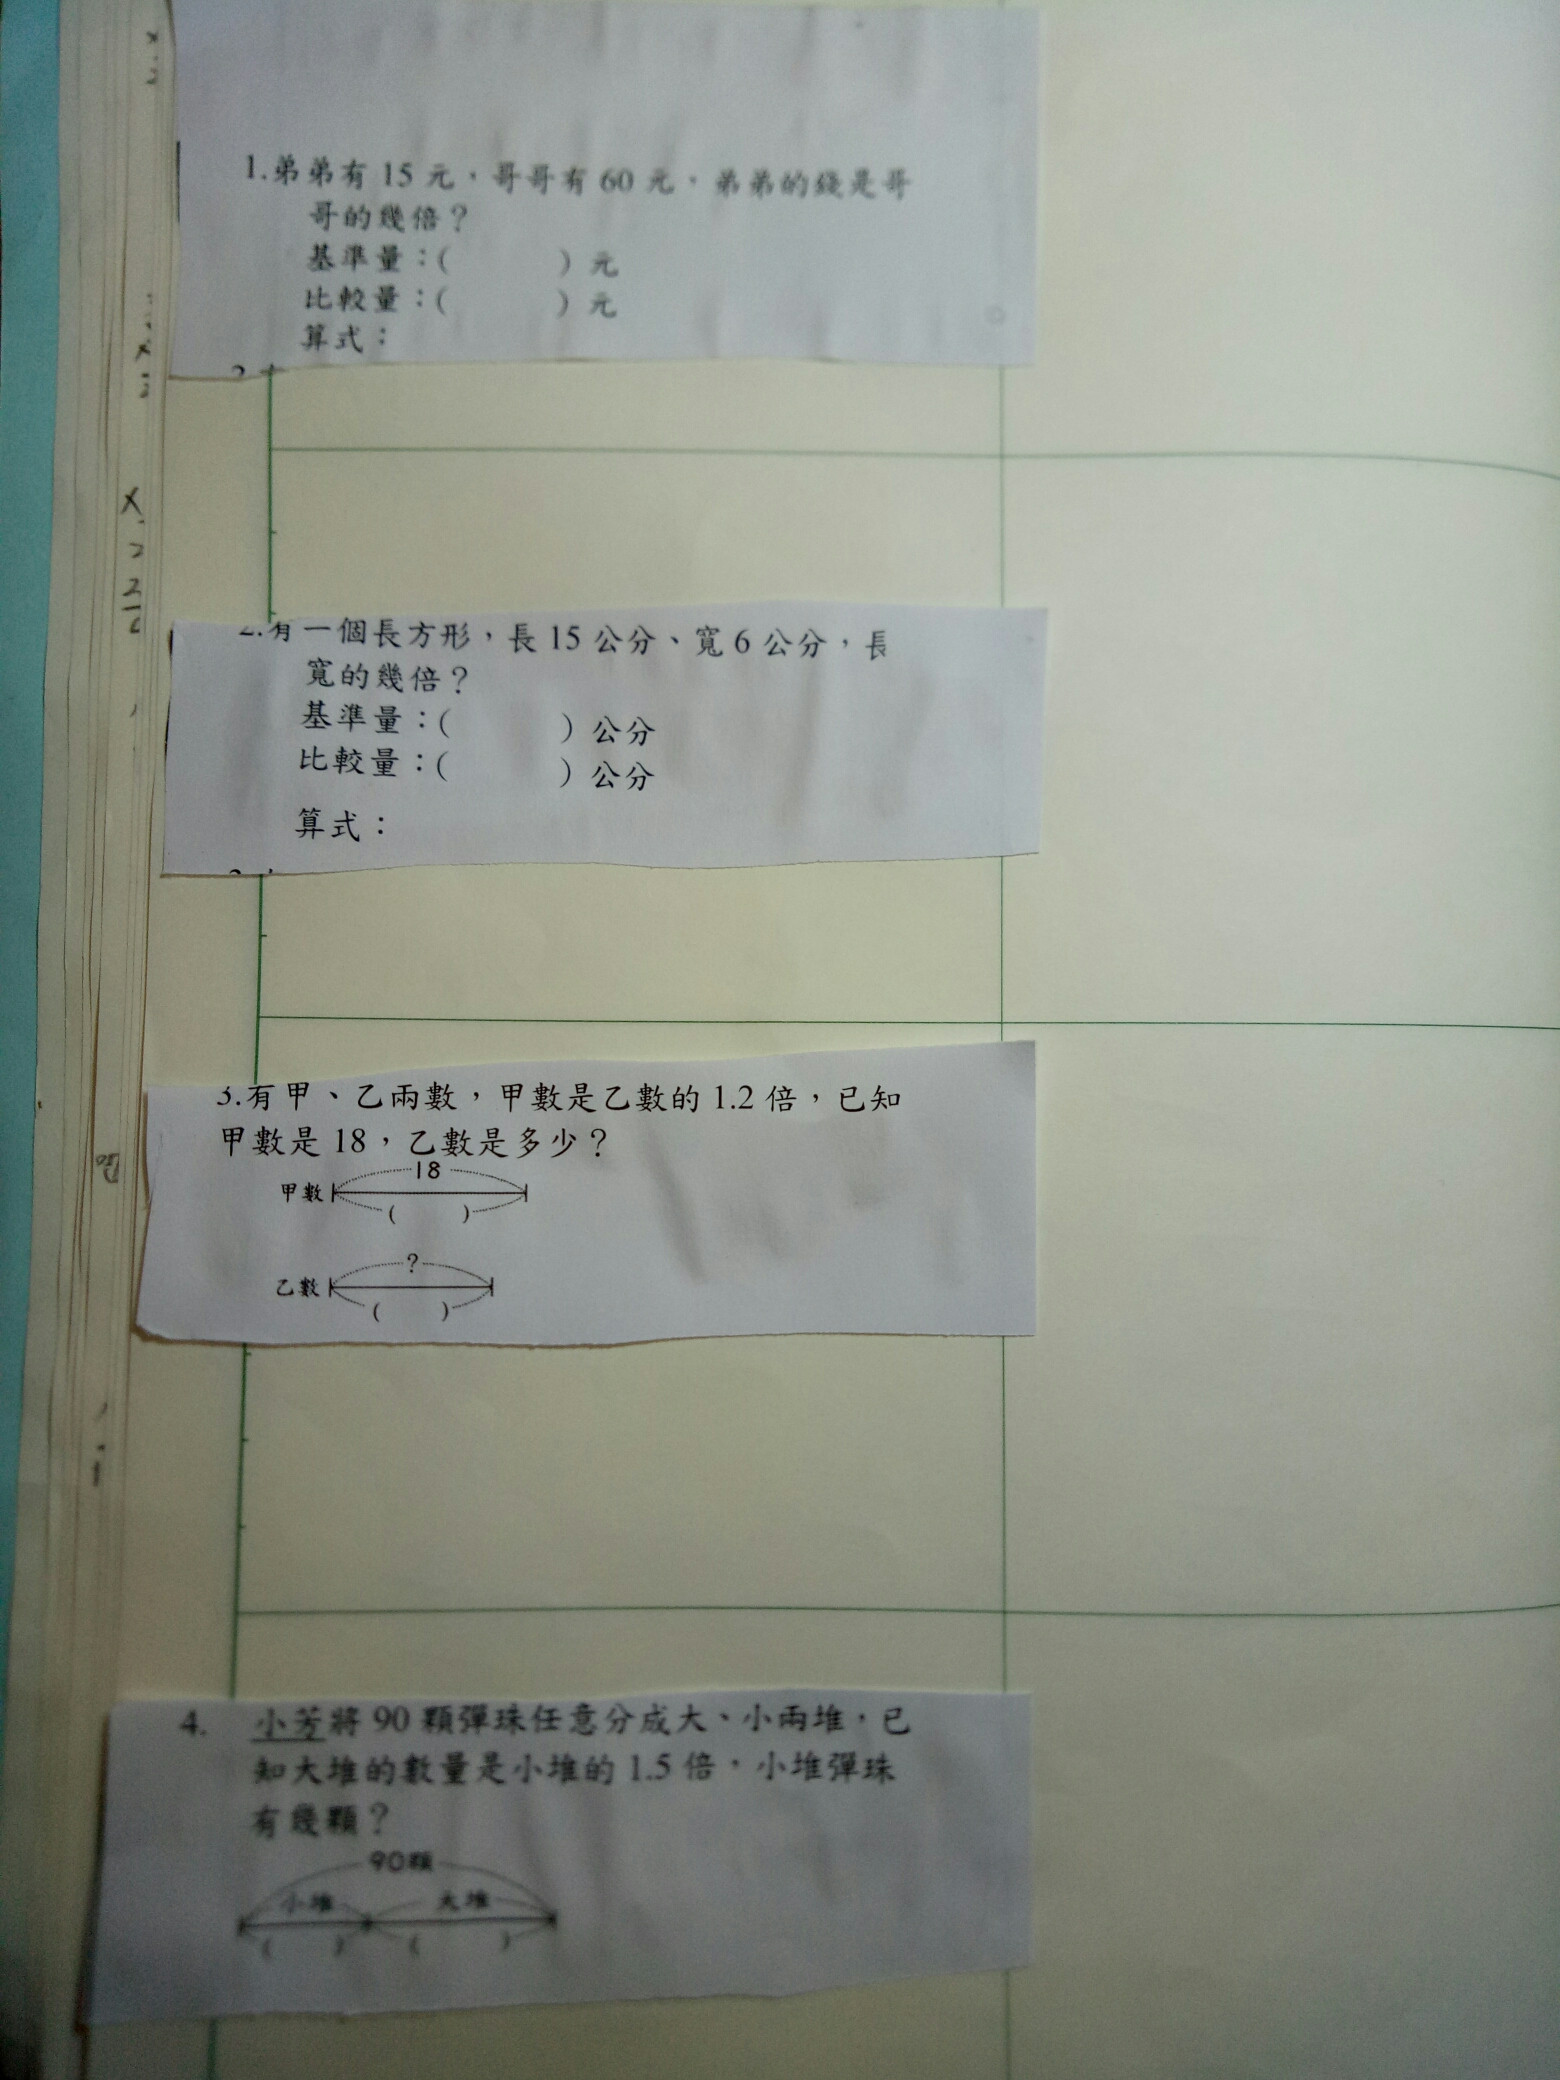 1.弟弟有 15 元，哥哥有 60 元，弟弟的錢是哥
哥的幾倍？
基準量：(　　　) 元
比較量：(　　　) 元
算式：
2.有一個長方形，長 15 公分、寬 6 公分，長
寬的幾倍？
基準量：(　　　) 公分
比較量：(　　　) 公分
算式：
3.有甲、乙兩數，甲數是乙數的 1.2 倍，已知
甲數是 18，乙數是多少？
18
甲數
(　　　)
?
乙數
(　　　)
4. 小芳將 90 顆彈珠任意分成大、小兩堆，已
知大堆的數量是小堆的 1.5 倍，小堆彈珠
有幾顆？
90顆
小堆 大堆
(　　　) (　　　)